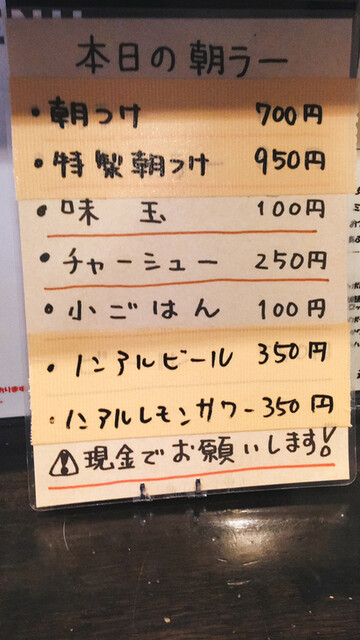 本日の朝ラー
・朝つけ 700円
・特製朝つけ 950円
・味玉 100円
・チャーシュー 250円
・小ごはん 100円
・ノンアルビール 350円
・ノンアルレモンサワー 350円
⚠現金でお願いします!